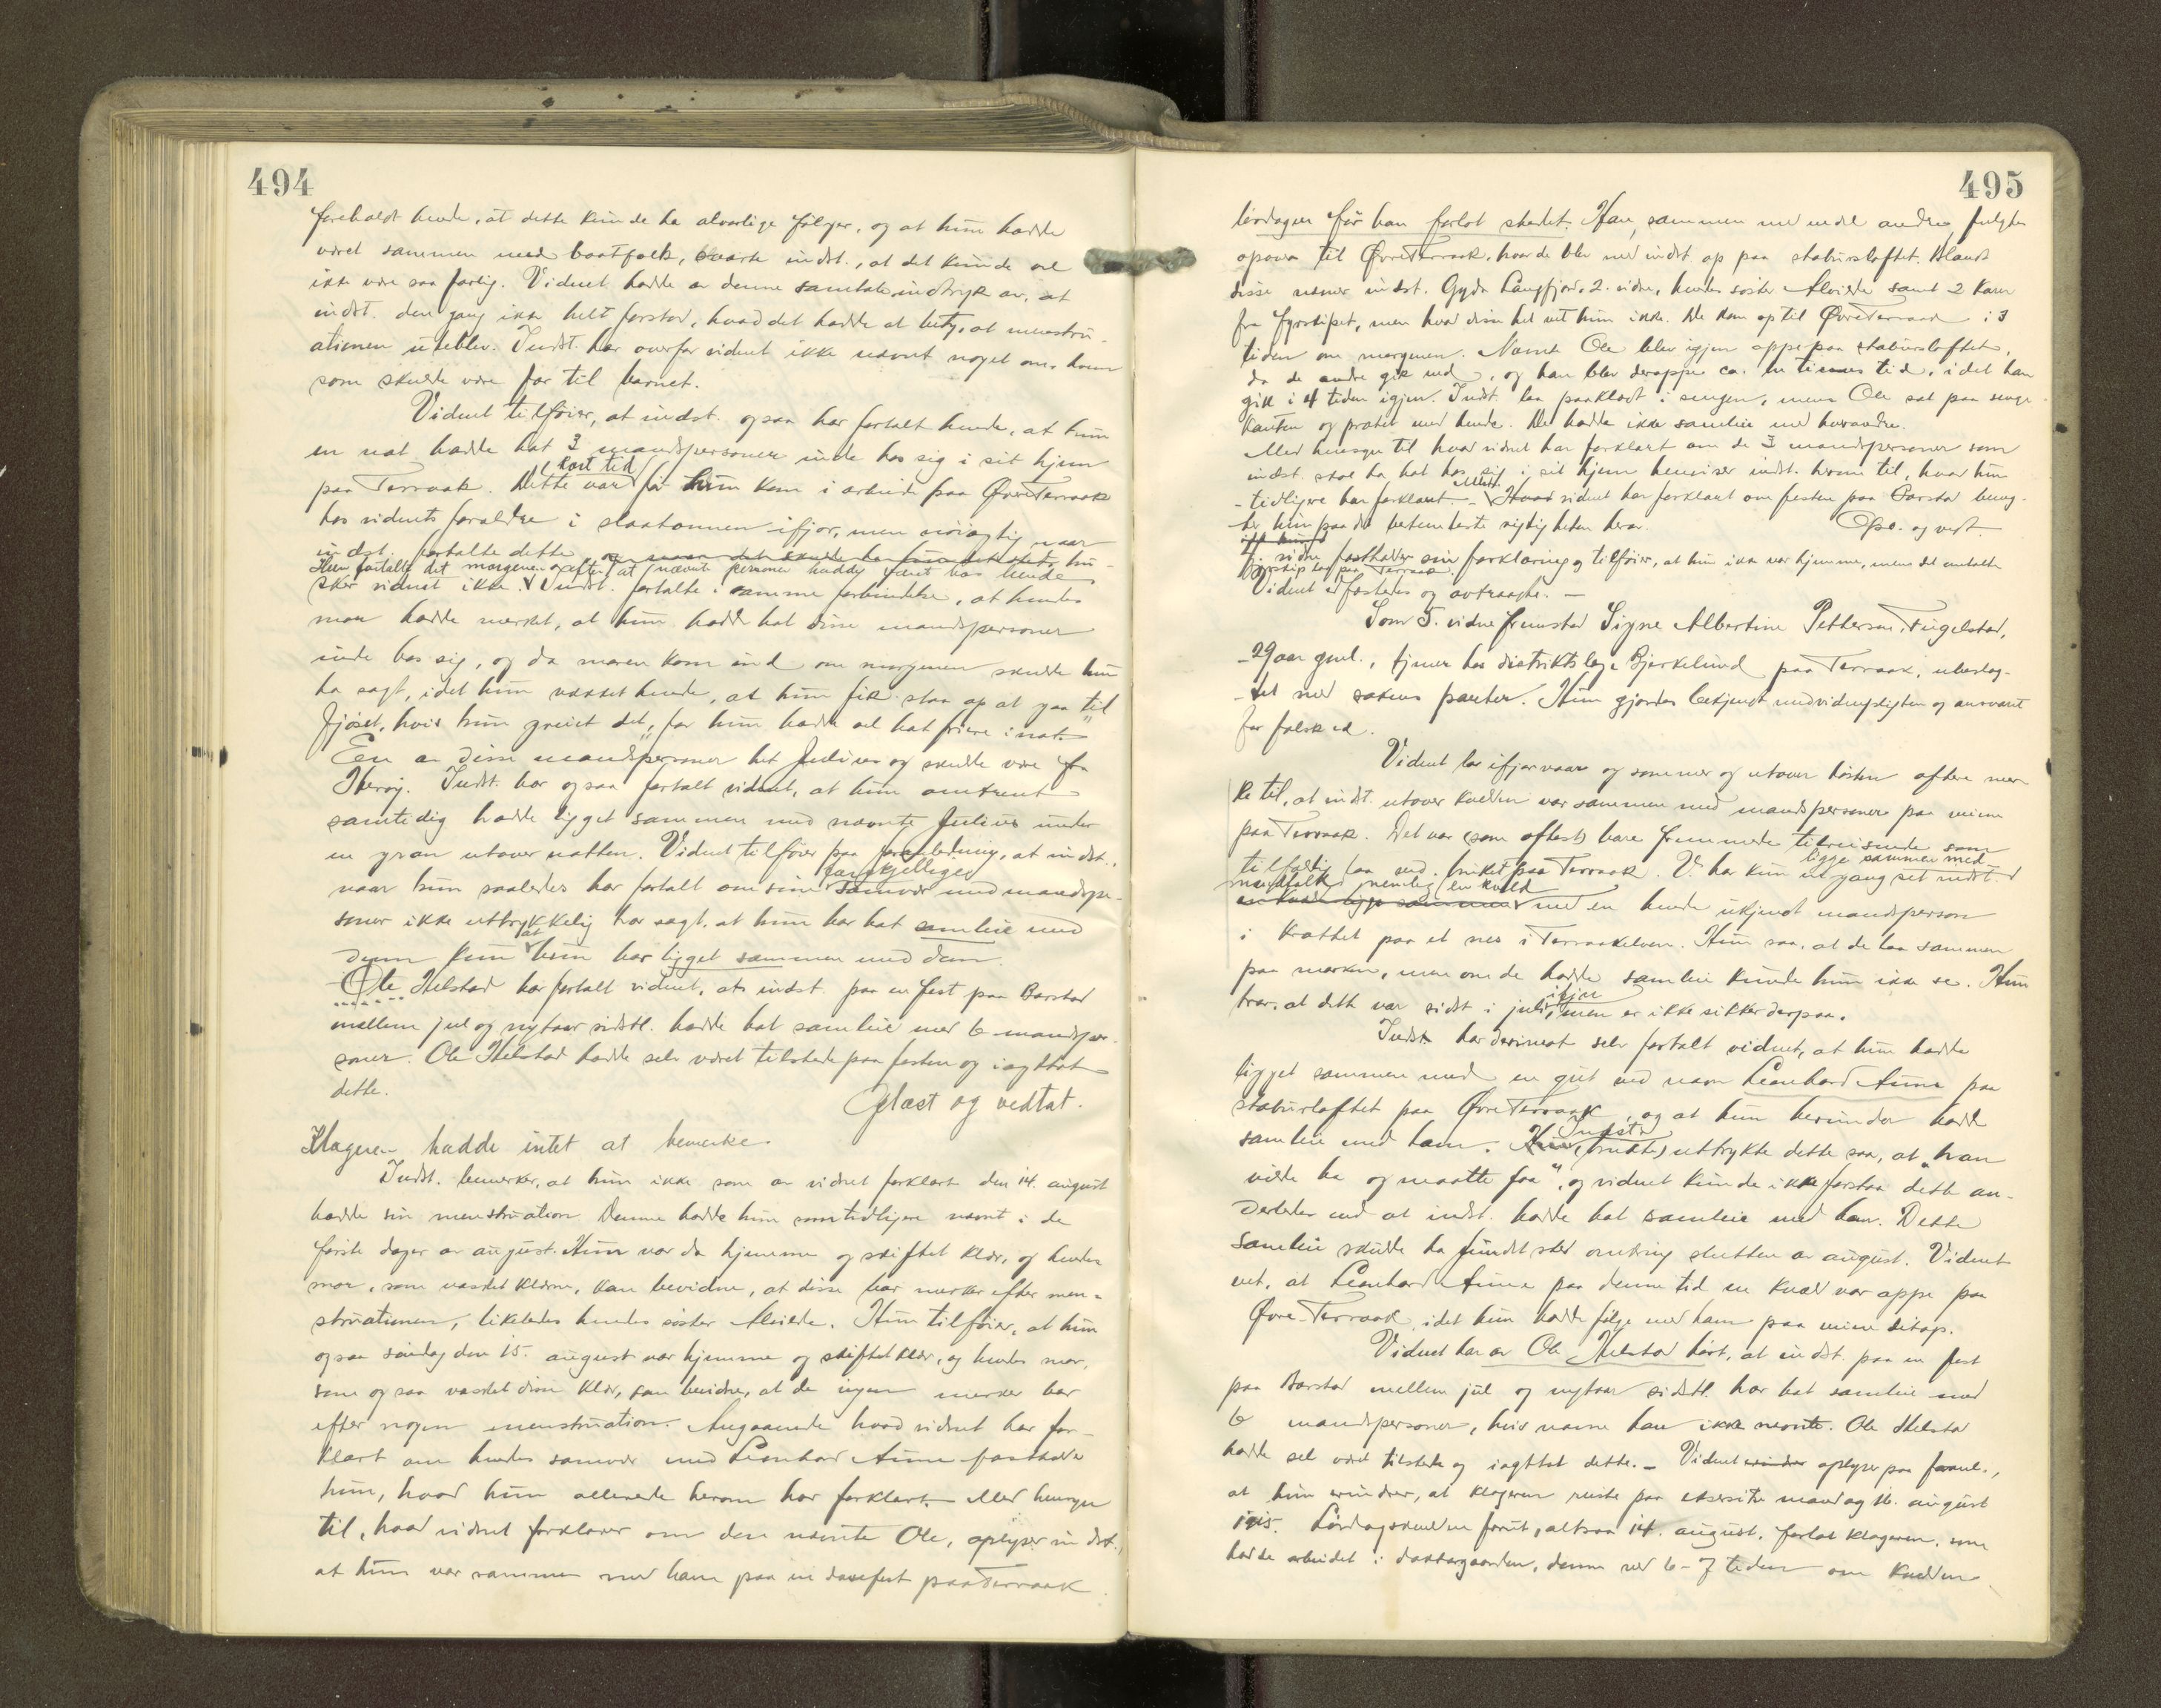 494
foreholdt hende, at dette kunde ha alvorlige følger, og at hun hadde
været sammen med baatfolk, svarte indst., at det kunde vel
ikke være saa farlig. Vidnet hadde av denne samtale indtryk av, at
indst. den gang ikke helt forstod, hvad det hadde at bety, at menstru-
ationen uteblev. Indst. har overfor vidnet ikke nævnt noget om, hvem
som skulde være far til barnet.
Vidnet tilføier, at indst. ogsaa har fortalt hende, at hun
en nat hadde hat 3 mandspersoner inde hos sig i sit hjem
paa Terraak. Dette var kort tid før hun kom i arbeide paa ØvreTerraak
hos vidnets forældre i slaataannen ifjor, men nøiagtig naar
indst. fortalte dette og naar det skulde ha fundet sted, hu-
Hun fortalte det morgenen efter at nævnte personer hadde været hos hende
sker vidnet ikke. Indst. fortalte i samme forbindelse, at hendes
mor hadde merket, at hun hadde hat disse mandspersoner
inde hos sig, og da moren kom ind om morgenen skulde hun
ha sagt, idet hun vækket hende, at hun fik staa op at gaa til
fjøset, hvis hun greiet det, "for hun hadde vel hat friere inat."
Een av disse mandspersoner het Julius og skulde være fra
Herøy. Indst. har ogsaa fortalt vidnet, at hun omtrent
samtidig hadde ligget sammen med nævnte Julius under
en gran utover natten. Vidnet tilføier paa foranledning, at indst.,
naar hun saaledes har fortalt om sine forskjellige samvær med mandsper-
soner ikke uttrykkelig har sagt, at hun har hat samleie med
dem kun at hun har ligget sammen med dem.
Ole Helstad har fortalt vidnet, at indst. paa en fest paa Barstad
mellem jul og nytaar sidstl. hadde hat samleie med 6 mandsper-
soner. Ole Helstad hadde selv været tilstede paa festen og iagttat
dette.
Oplæst og vedtat.
Klageren hadde intet at bemerke.
Indst. bemerker, at hun ikke som av vidnet forklart den 14. august
hadde sin menstruation. Denne hadde hun som tidligere nævnt i de
første dager av august. Hun var da hjemme og skiftet klær, og hendes
mor, som vasket klærne, kan bevidne, at disse bar merker efter men-
struationen, likeledes hendes søster Alvilde. Hun tilføier, at hun
ogsaa søndag den 15. august var hjemme og skiftet klær, og hendes mor,
som ogsaa vasket disse klær, kan bevidne, at de ingen merker bar
efter nogen menstruation. Angaaende hvad vidnet har for-
klart om hendes samvær med Leonhard Aune fastholder
hun, hvad hun allerede herom har forklart. Med hensyn
til, hvad vidnet forklarer om den nævnte Ole, oplyser indst.,
at hun var sammen med ham paa en dansefest paa Terraak
495
lørdagen før han forlot stedet. Han, sammen med endel andre, fulgte
opover til ØvreTerraak, hvor de blev med indst. op paa stabursloftet. Blandt
disse nævner indst. Gyda Langfjord, 2. vidne, hendes søster Alvilde samt 2 karer
fra fyrskipet, men hvad disse het vet hun ikke. De kom op til ØvreTerraak i 3
tiden om morgenen. Nævnte Ole blev igjen oppe paa stabursloftet,
da de andre gik ned, og han blev deroppe ca. en times tid, idet han
gik i 4 tiden igjen. Indst. laa paaklædt i sengen, mens Ole sat paa senge-
kanten og pratet med hende. De hadde ikke samleie med hverandre.
Med hensyn til hvad vidnet har forklart om de 3 mandspersoner som
indst. skal ha hat hos sig i sit hjem henviser indst. herom til, hvad hun
tidligere har forklaret. Hvad vidnet har forklart om festen paa Barstad beneg-
ter hun paa det bestemteste rigtigheten herav. Opl. og vedt.
vidne fastholder sin forklaring og tilføier, at hun ikke var hjemme, mens det omtalte
fyrskip laa paa Terraak.
Vidnet edfæstedes og avtraadte. —
Som 5. vidne fremstod Signe Albertine Petterson, Fugelstad,
29 aar gml., tjener hos distriktslæge Bjerkelund paa Terraak, ubeslag-
tet med sakens parter. Hun gjordes bekjendt med vidnepligten og ansvaret
for falsk ed.
Vidnet la ifjor vaar og sommer og utover høsten oftere mer-
ke til, at indst. utover kvelden var sammen med mandspersoner paa veiene
paa Terraak. Det var (som oftest) bare fremmede tilreisende som
tilfældig laa ved bruket paa Terraak. V. har kun en gang set indst. ligge sammen med
mandfolk, nemlig en kveld
en kveld ligge sammen med en hende ukjendt mandsperson
i krattet paa et nes i Terraakelven. Hun saa, at de laa sammen
paa marken, men om de hadde samleie kunde hun ikke se. Hun
tror, at dette var sidst i juli ifjor, men er ikke sikker derpaa.
Indst. har derimot selv fortalt vidnet, at hun hadde
ligget sammen med en gut ved navn Leonhard Aune paa
stabursloftet paa ØvreTerraak, og at hun herunder hadde
samleie med ham. Hun Indst. (brukte) uttrykte dette saa, at "han
vilde ha og maatte faa", og vidnet kunde ikke forstaa dette an-
derledes end at indst. hadde hat samleie med ham. Dette
samleie skulde ha fundet sted omkring slutten av august. Vidnet
vet, at Leonhard Aune paa denne tid en kveld var oppe paa
Øvre-Terraak, idet hun hadde følge med ham paa veien ditop.
Vidnet har av Ole Helstad hørt, at indst. paa en fest
paa Barstad mellem jul og nytaar sidstl. har hat samleie med
6 mandspersoner, hvis navne han ikke nævnte. Ole Helstad
hadde selv været tilstede og iagttat dette. – Vidnet erindrer oplyser paa foranl.,
at hun erindrer, at klageren reiste paa eksersits mandag 16. august
1915. Lørdagskvelden forut, altsaa 14. august, forlot klageren, som
hadde arbeidet i doktorgaarden, denne ved 6–7 tiden om kvelden